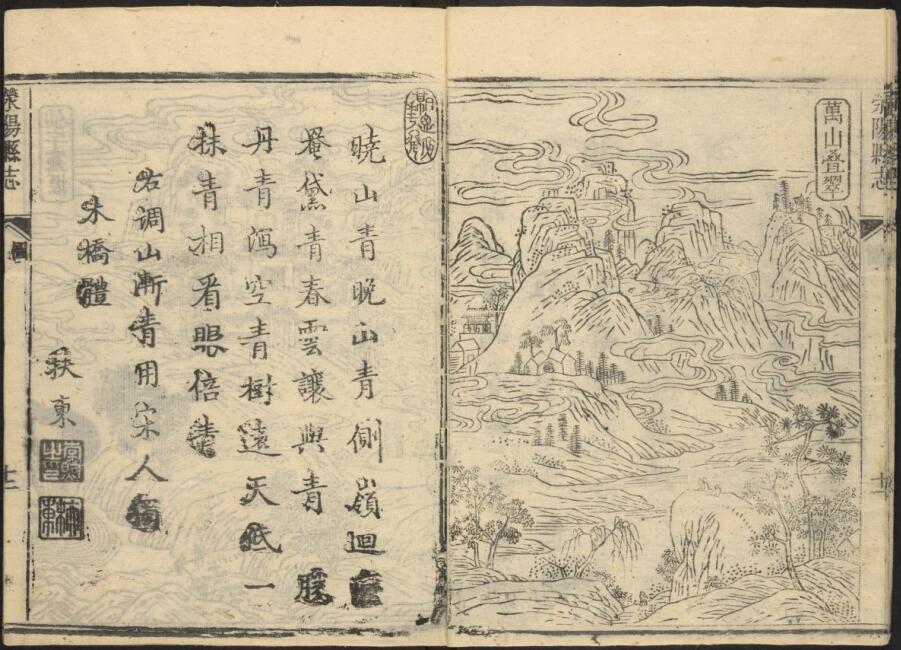 萬山叠翠
滎陽縣志
曉山青晚山青側嶺迴
黛青春雲讓與青
丹青瀉空青樹遠天低一
抹青相看眼倍青
右調山漸青用宋人
木橋體
東
滎陽縣志
圖